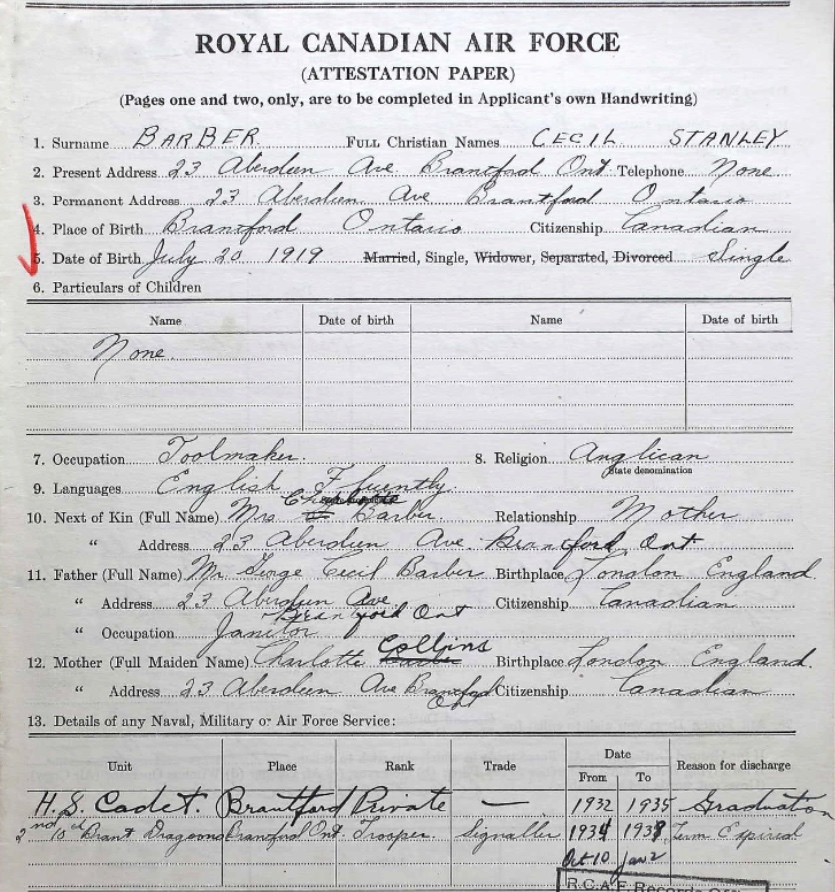 ROYAL CANADIAN AIR FORCE
(ATTESTATION PAPER)
(Pages one and two, only, are to be completed in Applicant's own Handwriting)
1. Surname BARBER. FULL Christian Names CECIL STANLEY
2. Present Address 23 Aberdeen Ave. Brantford Ont Telephone None
3. Permanent Address 23 Aberdeen Ave Brantford Ontario
4. Place of Birth Brantford Ontario Citizenship Canadian
5. Date of Birth July 20 1919 Married, Single, Widower, Separated, Divorced Single
6. Particulars of Children
Name Date of birth Name Date of birth
None.
7. Occupation Toolmaker. 8. Religion Anglican
State denomination
9. Languages English Fluently.
Charlotte
10. Next of Kin (Full Name) Mrs Barber Relationship Mother
" Address 23 Aberdeen Ave. Brantford Ont
11. Father (Full Name) Mr George Cecil Barber Birthplace London England
" Address 23 Aberdeen Ave. Citizenship Canadian
Brantford Ont
" Occupation Janitor
Collins
12. Mother (Full Maiden Name) Charlotte Barber Birthplace London England.
" Address 23 Aberdeen Ave Brantford Citizenship Canadian
Ont
13. Details of any Naval, Military or Air Force Service:
Unit Place Rank Trade Date Reason for discharge
From To
H.S. Cadet. Brantford Private — 1932 1935 Graduation
2nd 10th Brant Dragoons Brantford Ont. Trooper. Signaller 1934 1938 Term Expired
Oct 10 Jan 2
R.C.A.F. Records